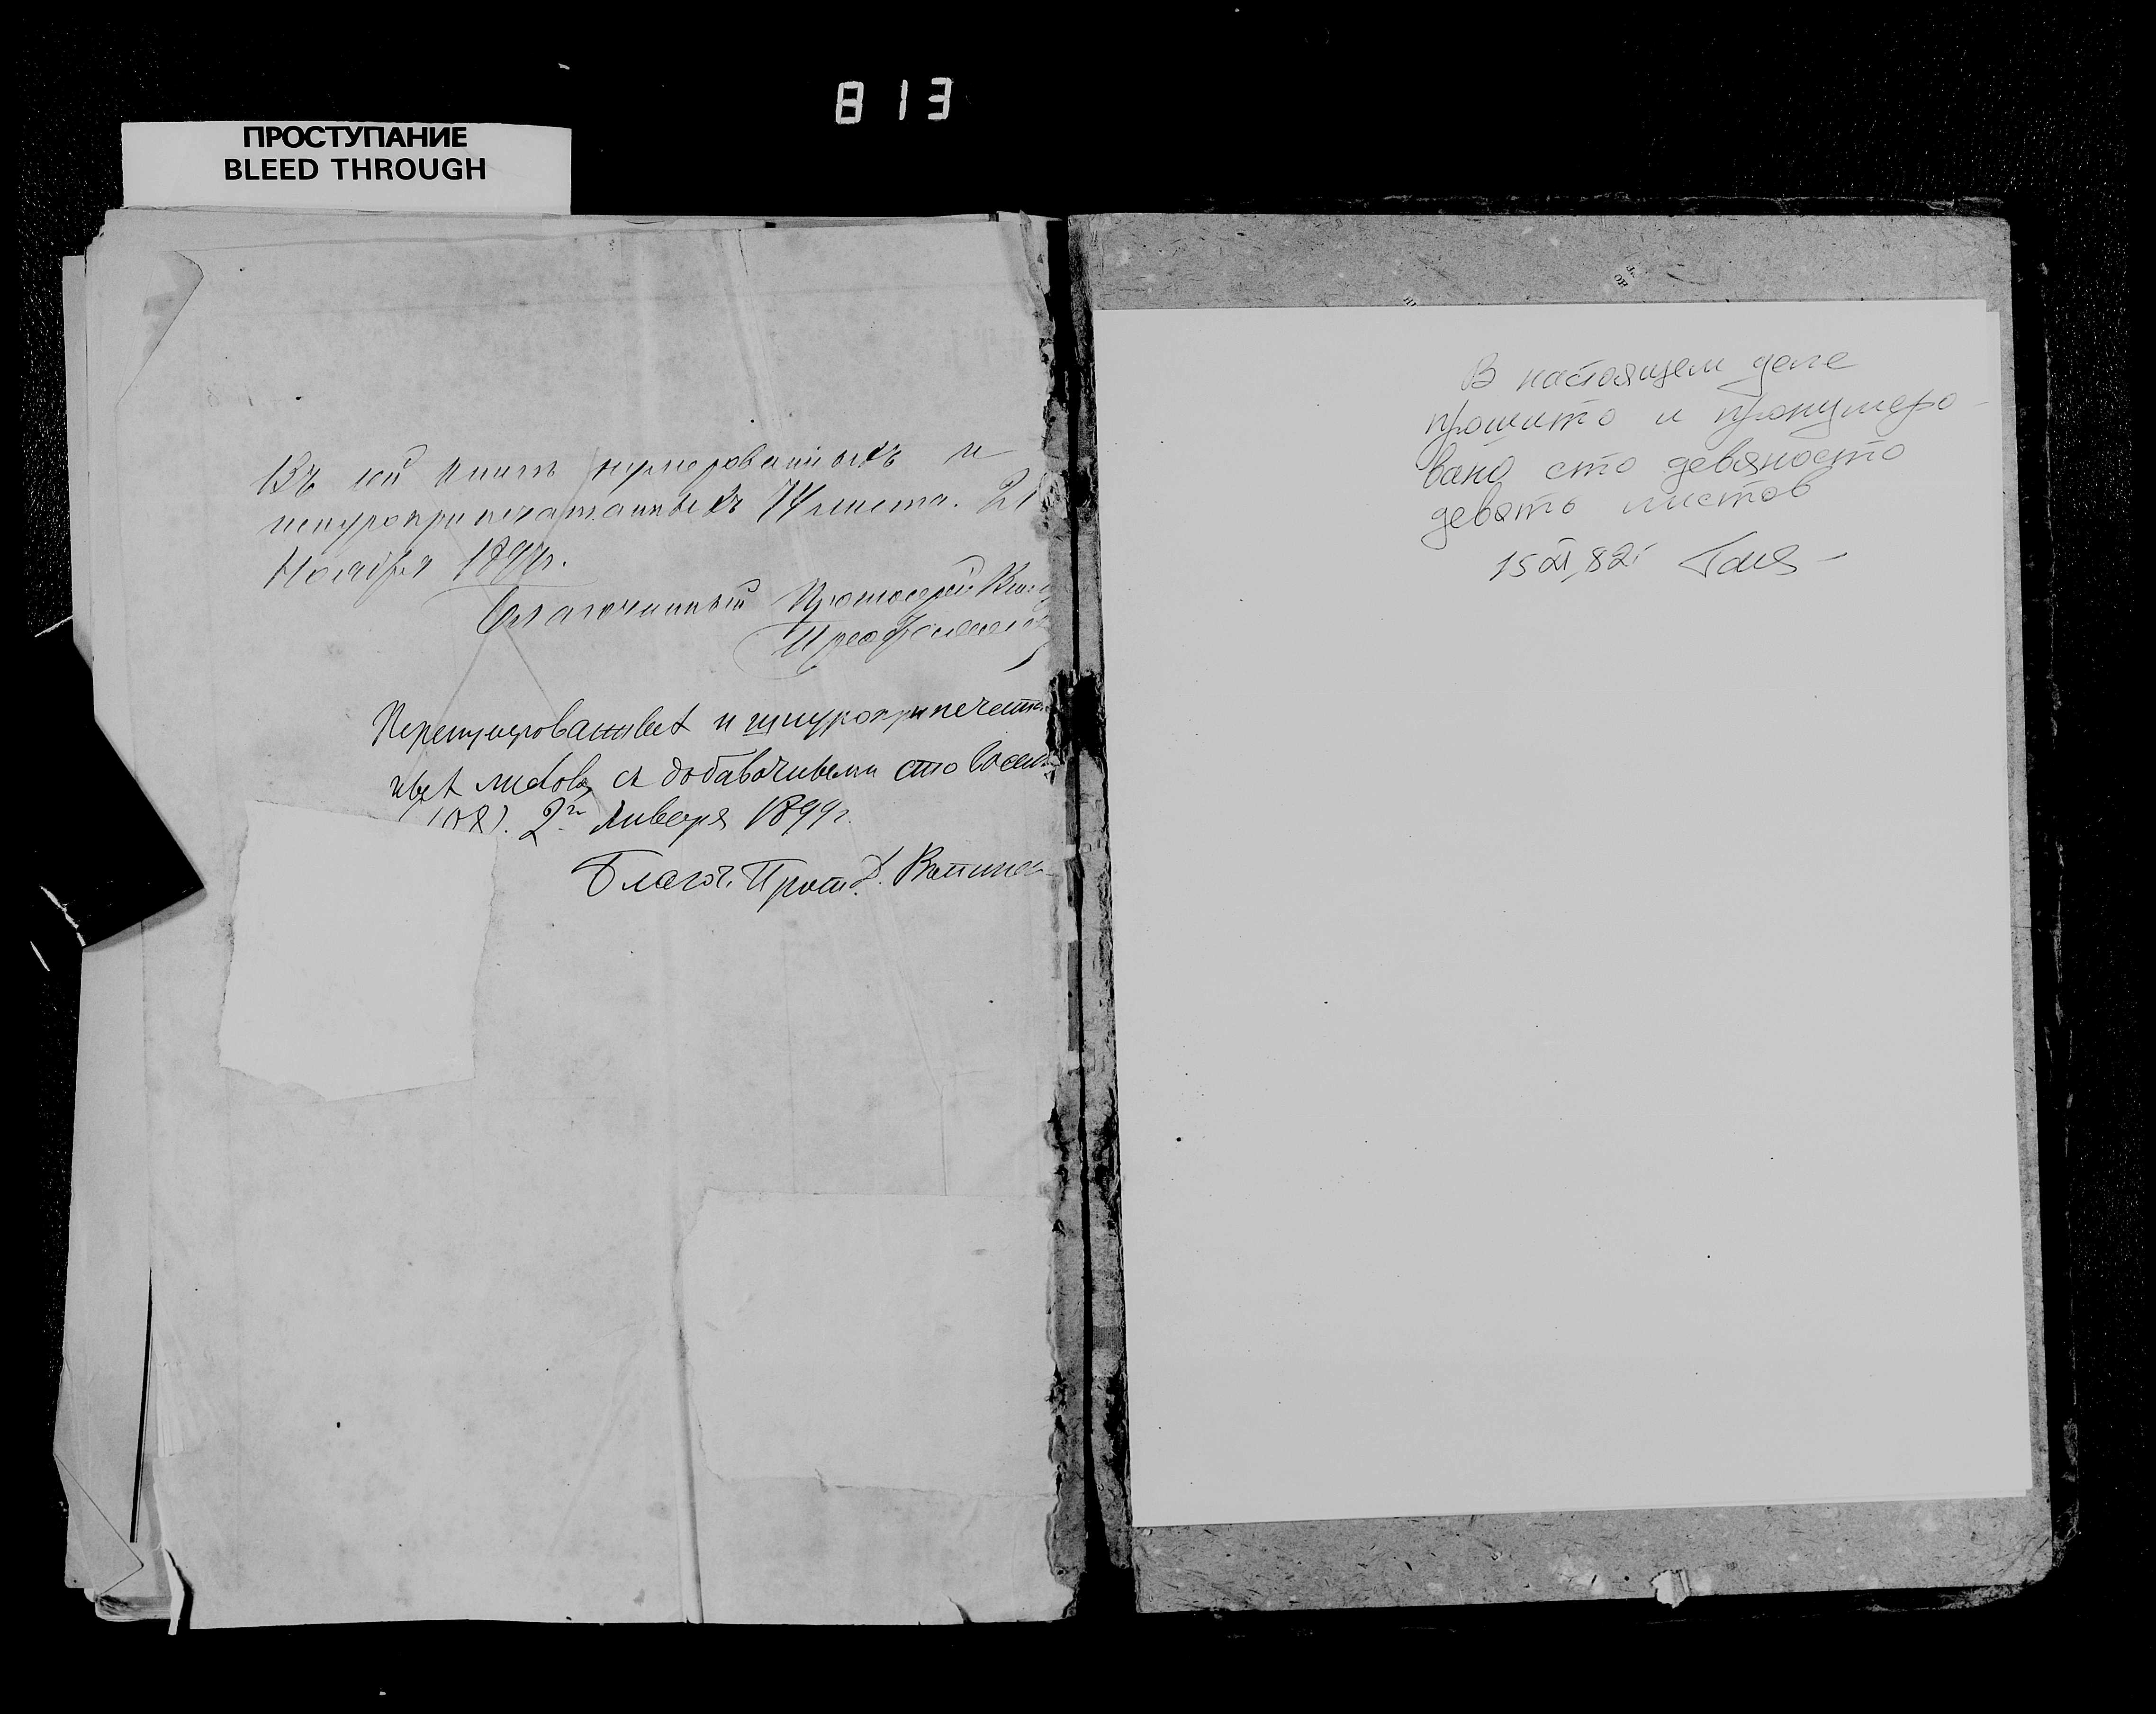 813
ПРОСТУПАНИЕ
BLEED THROUGH
Въ сей книгѣ нумерованныхъ и
шнуроприпечатанныхъ 74 листа. 21
Ноября
Благочинный Протоіерей
Перенумерованных и шнуроприпечатан
ных листов, съ добавочными сто восемь
(108). 2го Января 1899 г.
Благоч. Прот.
В настоящем деле
прошито и пронумеро-
вано сто девяносто
девять листов
15 XI 82